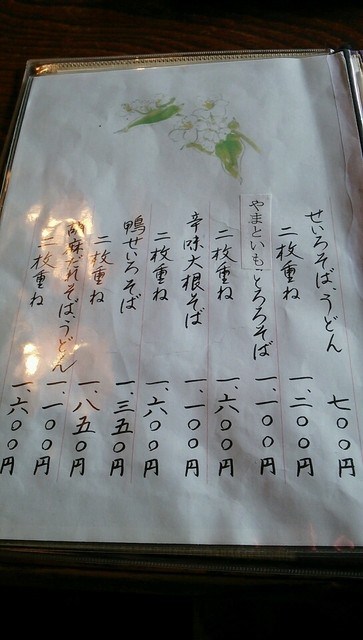 せいろそば、うどん 七〇〇円
二枚重ね 一、二〇〇円
やまといもとろろそば 一、一〇〇円
二枚重ね 一、六〇〇円
辛味大根そば 一、一〇〇円
二枚重ね 一、六〇〇円
鴨せいろそば 一、三五〇円
二枚重ね 一、八五〇円
胡麻だれそば、うどん 一、一〇〇円
二枚重ね 一、六〇〇円